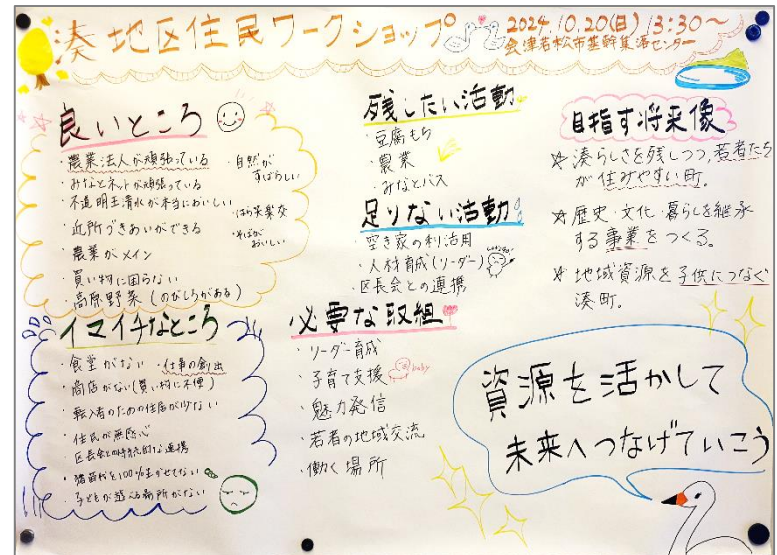 湊地区住民ワークショップ
2024.10.20(日) 13:30〜
会津若松市基幹集落センター
良いところ
・農業法人が頑張っている
・みなとネットが頑張っている
・不道明王清水が本当においしい
・近所づきあいができる
・農業がメイン
・買い物に困らない
・高原野菜(のびしろがある)
・自然が
すばらしい
・はら笑楽交
・そばが
おいしい
イマイチなところ
・食堂がない
・仕事の創出
・商店がない(買い物に不便)
・転入者のための住居が少ない
・住民が無関心
・区長会との持続的な連携
・猪苗代を100%生かせてない
・子どもが遊べる場所がない
残したい活動
・豆腐もち
・農業
・みなとバス
足りない活動
・空き家の利活用
・人材育成(リーダー)
・区長会との連携
必要な取組
・リーダー育成
・子育て支援
baby
・魅力発信
・若者の地域交流
・働く場所
目指す将来像
☆ 湊らしさを残しつつ、若者たち
が住みやすい町。
☆ 歴史・文化・暮らしを継承
する事業をつくる。
☆ 地域資源を子供につなぐ
湊町。
資源を活かして
未来へつなげていこう